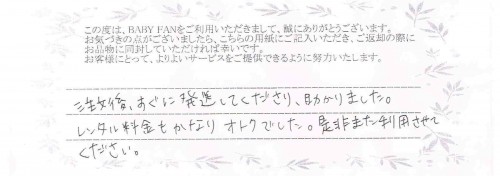 この度は、BABY FANをご利用いただきまして、誠にありがとうございます。
お気づきの点がございましたら、こちらの用紙にご記入いただき、ご返却の際に
お品物に同封していただければ幸いです。
お客様にとって、よりよいサービスをご提供できるように努力いたします。
注文後、すぐに発送してくださり、助かりました。
レンタル料金もかなりオトクでした。是非また利用させて
ください。